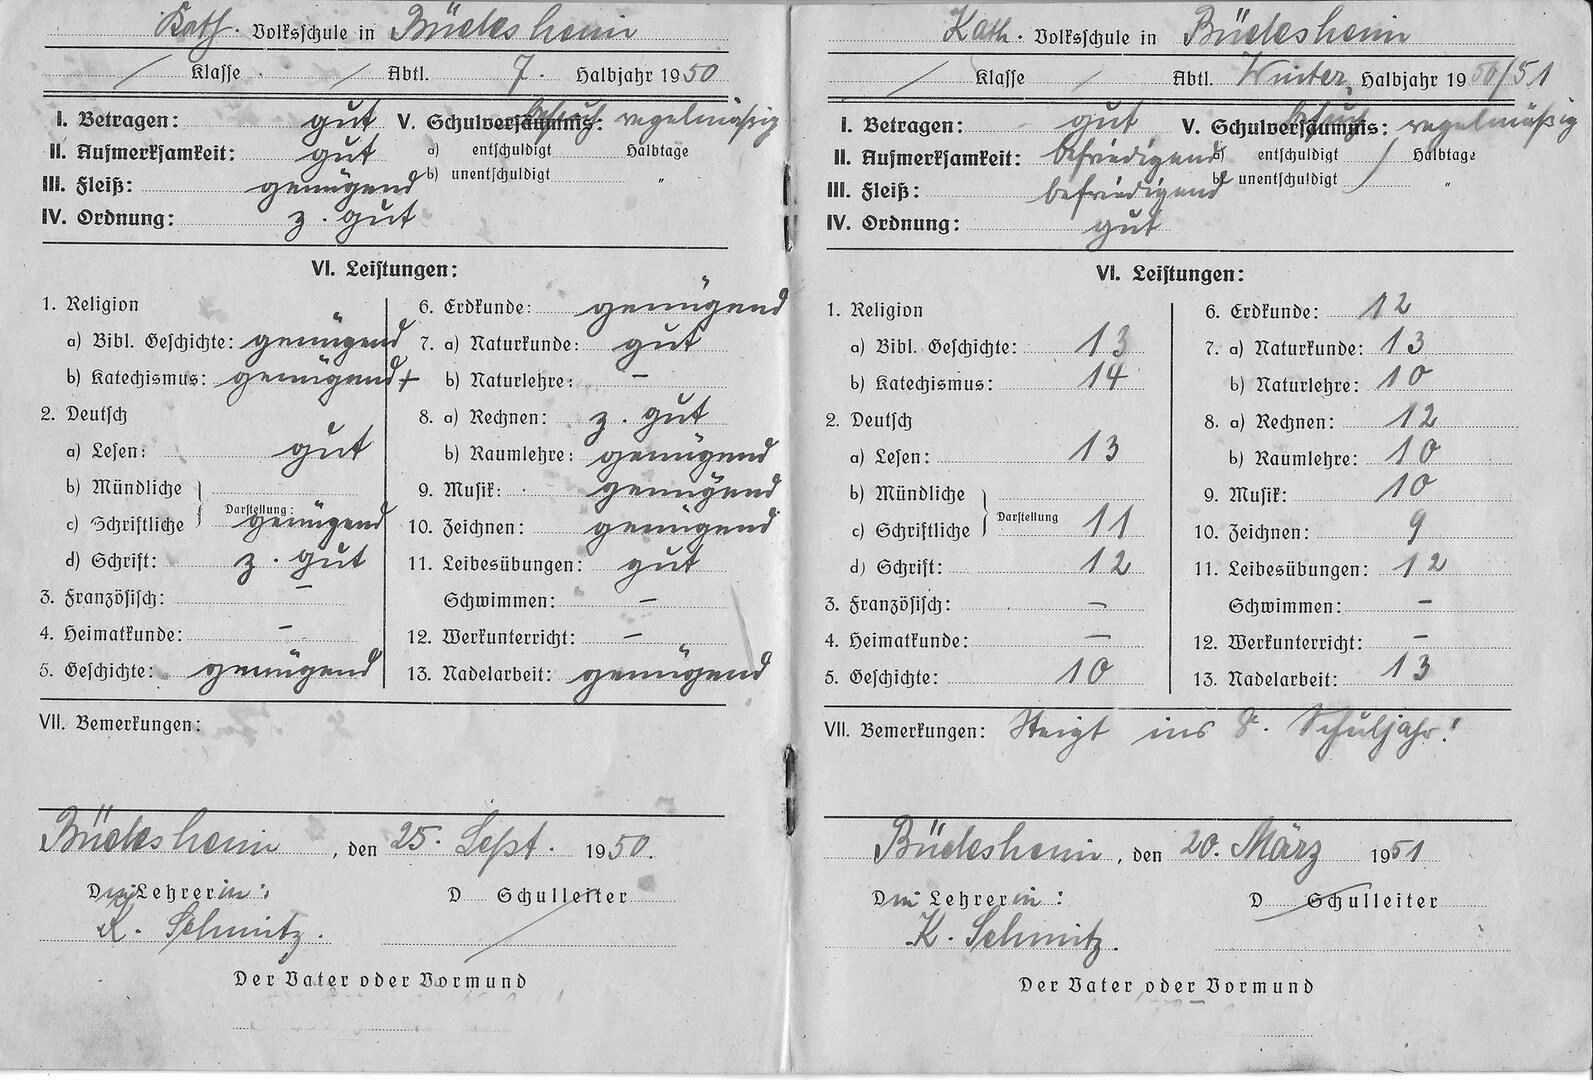 Kath. Volksschule in Büdesheim
/ Klasse / Abtl. 7. Halbjahr 1950
I. Betragen: gut
II. Aufmerksamkeit: gut
III. Fleiß: genügend
IV. Ordnung: z. gut
V. Schulversäumnis: besuch regelmäßig
a) entschuldigt Halbtage
b) unentschuldigt "
VI. Leistungen:
1. Religion
a) Bibl. Geschichte: genügend
b) Katechismus: genügend +
2. Deutsch
a) Lesen: gut
b) Mündliche
c) Schriftliche } Darstellung: genügend
d) Schrift: z. gut
3. Französisch: –
4. Heimatkunde: –
5. Geschichte: genügend
6. Erdkunde: genügend
7. a) Naturkunde: gut
b) Naturlehre: –
8. a) Rechnen: z. gut
b) Raumlehre: genügend
9. Musik: genügend
10. Zeichnen: genügend
11. Leibesübungen: gut
Schwimmen: –
12. Werkunterricht: –
13. Nadelarbeit: genügend
VII. Bemerkungen:
Büdesheim, den 25. Sept. 1950.
Die Lehrerin:
K. Schmitz.
D Schulleiter
Der Vater oder Vormund
Kath. Volksschule in Büdesheim
/ Klasse / Abtl. Winter Halbjahr 1950/51
I. Betragen: gut
II. Aufmerksamkeit: befriedigend
III. Fleiß: befriedigend
IV. Ordnung: gut
V. Schulversäumnis: besuch regelmäßig
a) entschuldigt / Halbtage
b) unentschuldigt / "
VI. Leistungen:
1. Religion
a) Bibl. Geschichte: 13
b) Katechismus: 14
2. Deutsch
a) Lesen: 13
b) Mündliche
c) Schriftliche } Darstellung 11
d) Schrift: 12
3. Französisch: –
4. Heimatkunde: –
5. Geschichte: 10
6. Erdkunde: 12
7. a) Naturkunde: 13
b) Naturlehre: 10
8. a) Rechnen: 12
b) Raumlehre: 10
9. Musik: 10
10. Zeichnen: 9
11. Leibesübungen: 12
Schwimmen: –
12. Werkunterricht: –
13. Nadelarbeit: 13
VII. Bemerkungen: Steigt ins 8. Schuljahr!
Büdesheim, den 20. März 1951
Die Lehrerin:
K. Schmitz.
D Schulleiter
Der Vater oder Vormund